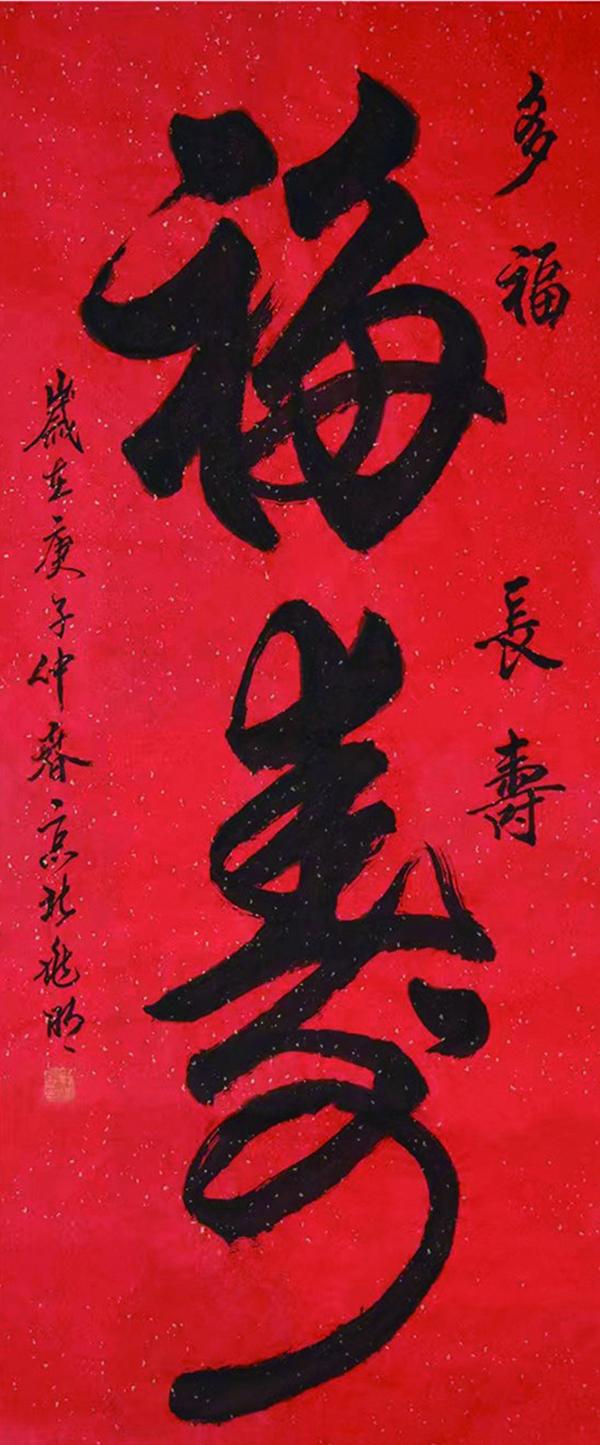 多福長壽
福壽
歲在庚子仲春京北兆明